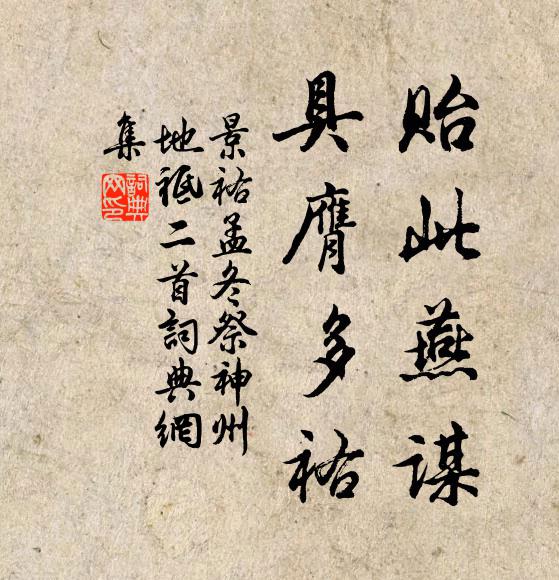 貽此燕謀
具膺多祐
景祐孟冬祭神州
地祇二首詞典網
集
詞典
网印